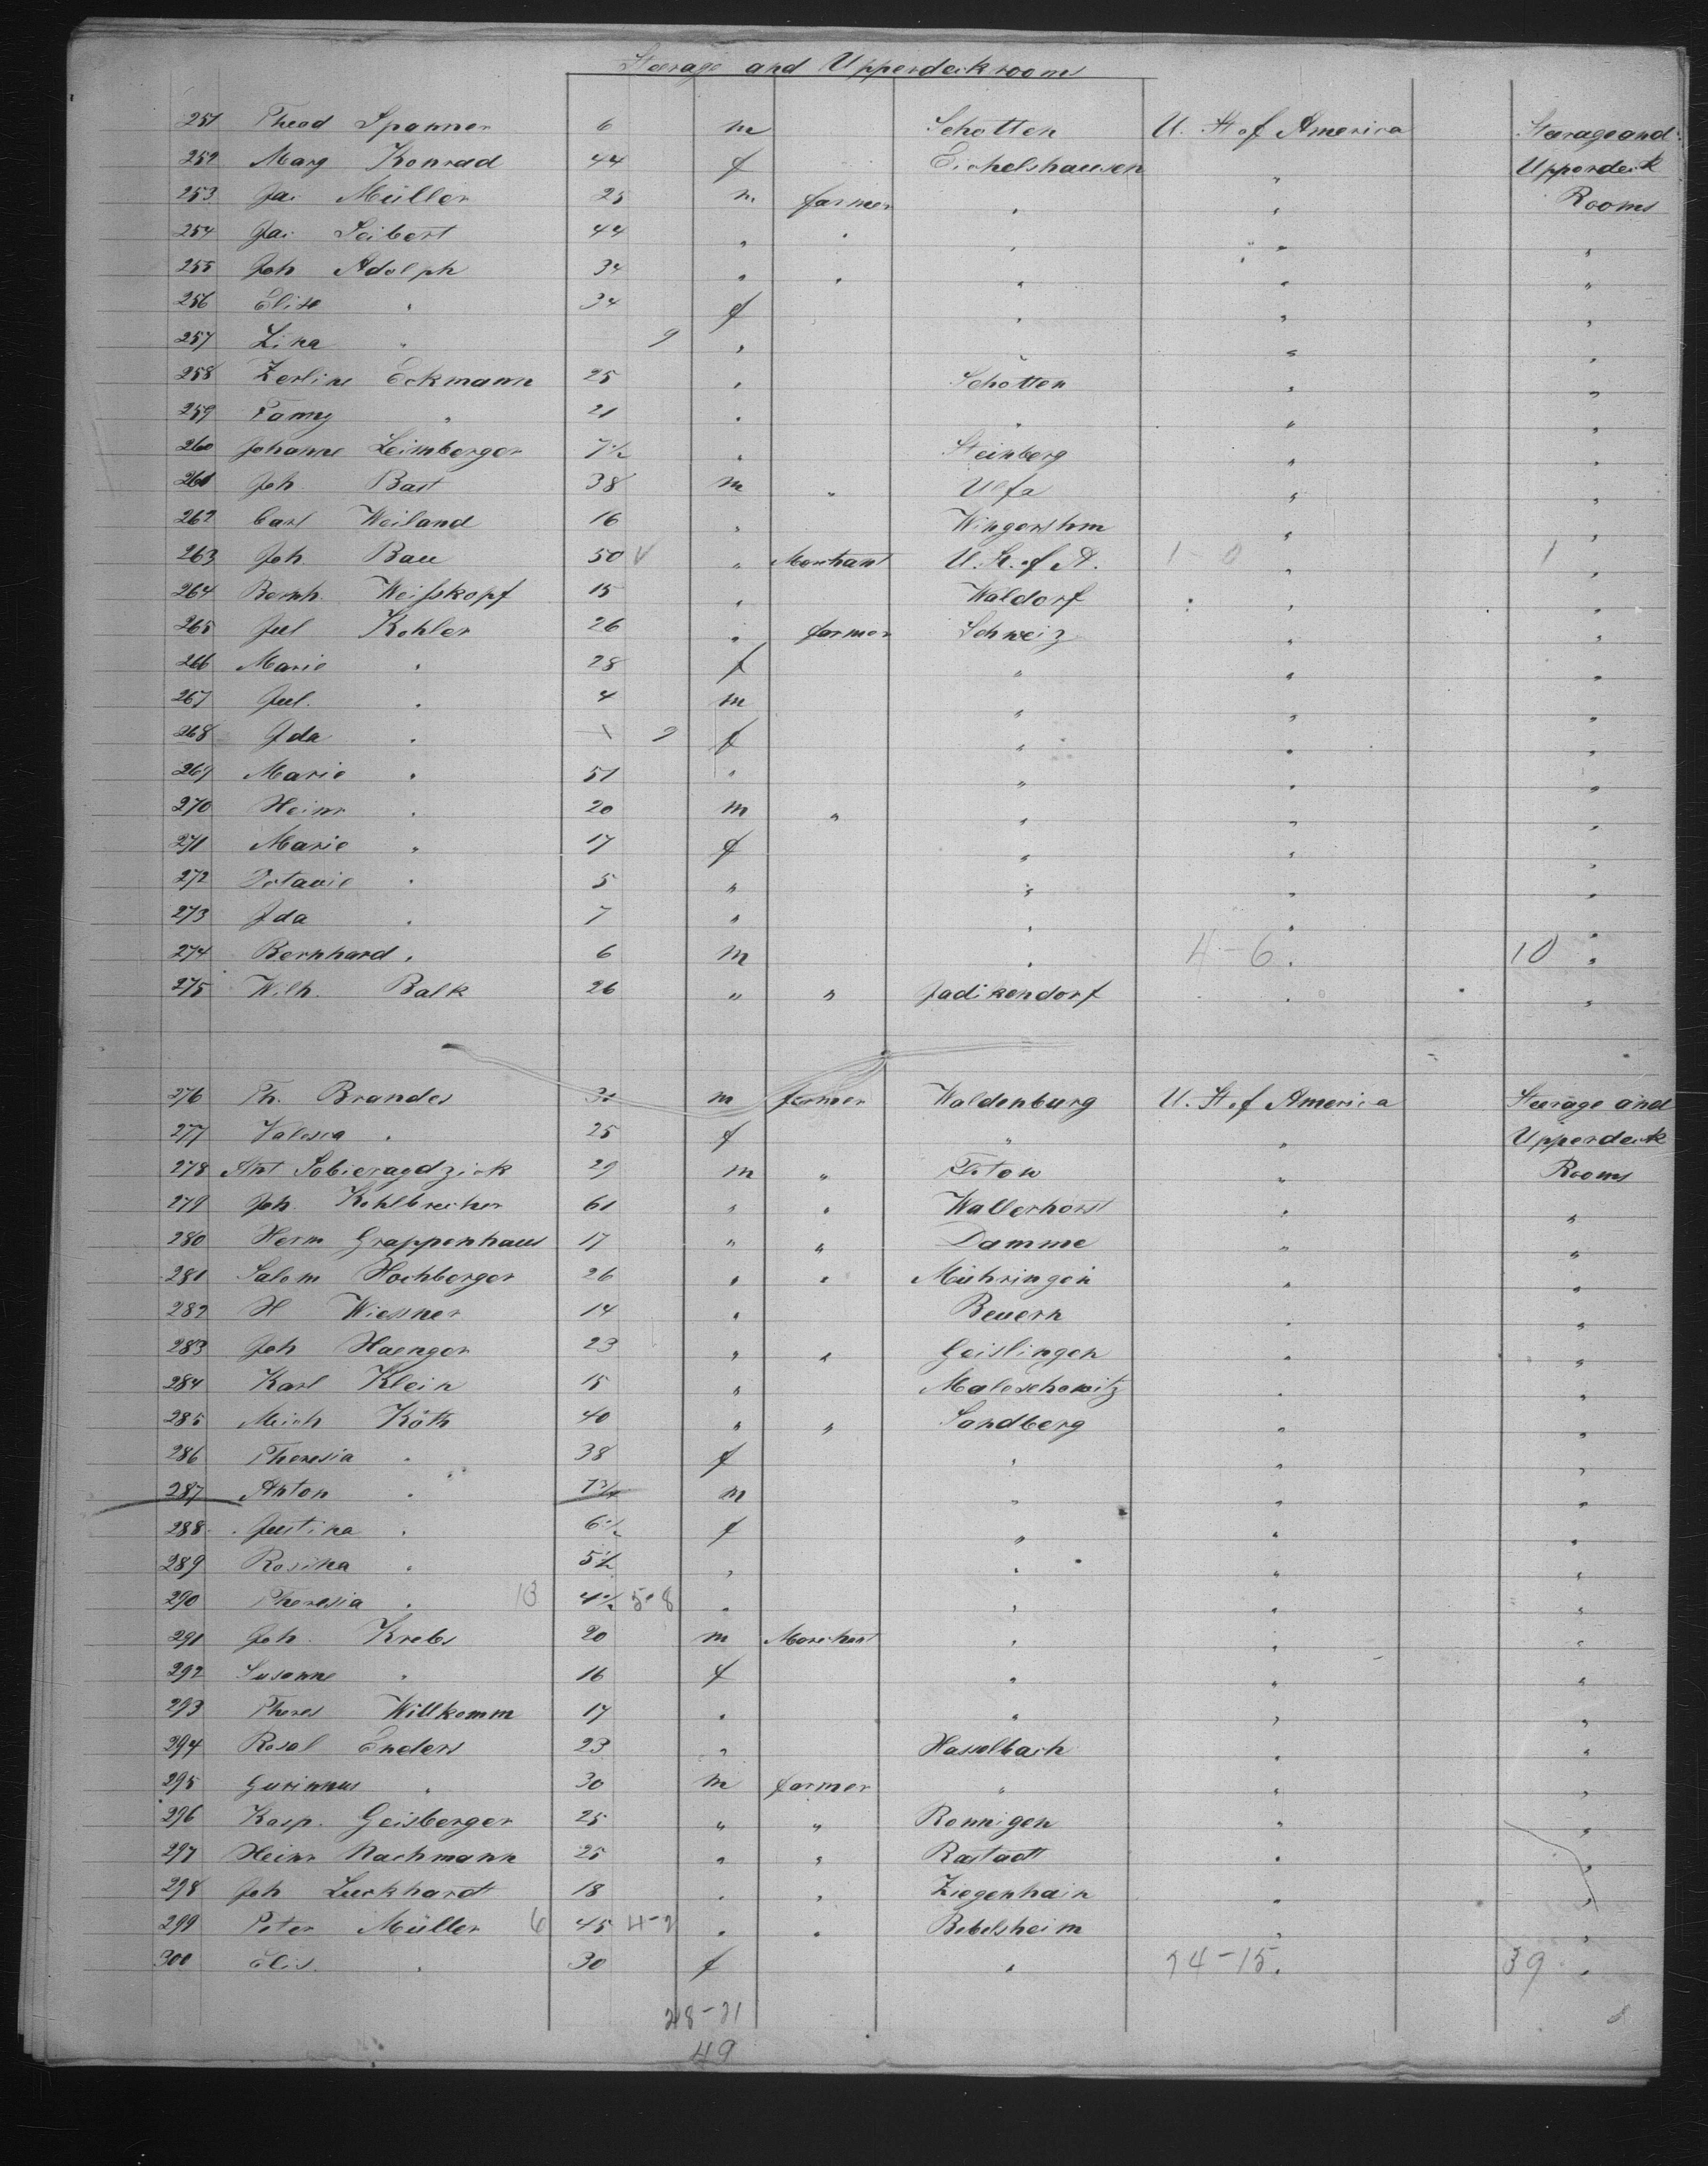 Steerage and Upperdeckrooms
251 Theod Spanner 6 m Schotten U. St of America Steerage and
252 Marg Konrad 44 f Eichelshausen " Upperdeck
253 Jac Müller 25 m farmer " " Rooms
254 Jac Seibert 44 " " " " "
255 Joh Adolph 34 " " " " "
256 Elise " 34 f " " "
257 Lina " 9 " " " "
258 Zerline Eckmann 25 " Schotten " "
259 Fanny " 21 " " " "
260 Johanne Leimberger 7½ " Steinberg " "
261 Joh Bast 38 m " Ulfa " "
262 Carl Weiland 16 " Wingershm " "
263 Joh Bau 50 " Merchant U. St. of A. 1-0 " 1 "
264 Bernh. Weisskopf 15 " Waldorf " "
265 Jul Kohler 26 " farmer Schweiz " "
266 Marie " 28 f " " "
267 Jul. " 4 m " " "
268 Ida " 9 f " " "
269 Marie " 51 " " " "
270 Heinr " 20 m " " " "
271 Marie " 17 f " " "
272 Octavie " 5 " " " "
273 Ida " 7 " " " "
274 Bernhard " 6 m " 4-6 " 10 "
275 Wilh. Balk 26 " " Jadikendorf " "
276 Th. Brandes m farmer Waldenburg U. St of America Steerage and
277 Valesca " 25 f " " Upperdeck
278 Ant Sobieragdzick 29 m " " Rooms
279 Joh. Kohlbrecher 61 " " Wallerhorst " "
280 Herm Grappenhaus 17 " " Damme " "
281 Salom Hochberger 26 " " Mühringen " "
282 H Wiessner 14 " Beuern " "
283 Joh Haenger 23 " " Geislingen " "
284 Karl Klein 15 " Maleschowitz " "
285 Mich Köth 40 " " Sandberg " "
286 Theresia " 38 f " " "
287 Anton " 7¾ m " " "
288 Justina " 6½ f " " "
289 Rosina " 5½ " " " "
290 Theresia " 13 4½ 5-8 " " " "
291 Joh. Krebs 20 m Merchant " " "
292 Susanne " 16 f " " "
293 Theres Willkomm 17 " " " "
294 Rosal Enders 23 " Hasselbach " "
295 " 30 m farmer " " "
296 Kasp. Geisberger 25 " " Ronnigen " "
297 Heinr Nachmann 25 " " Rastadt " "
298 Joh Luckhardt 18 " " Ziegenhain " "
299 Peter Müller 6 45 4-2 " " Bebelsheim " "
300 Elis. " 30 f " 24-15 " 39 "
28-21
49